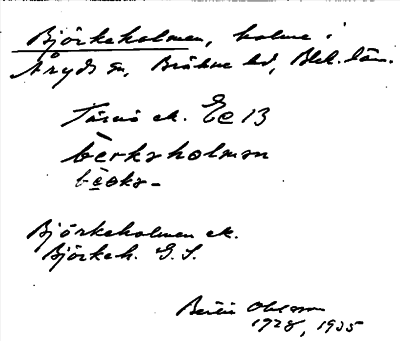 Björkeholmen, holme i
Åryds sn, Bräkne hd, Blek. län.
Tärnö ek. Ec 13
berksholmen
Björkeholmen ek.
Björkeh. G.S.
Bertil Ohlsson
1928, 1935